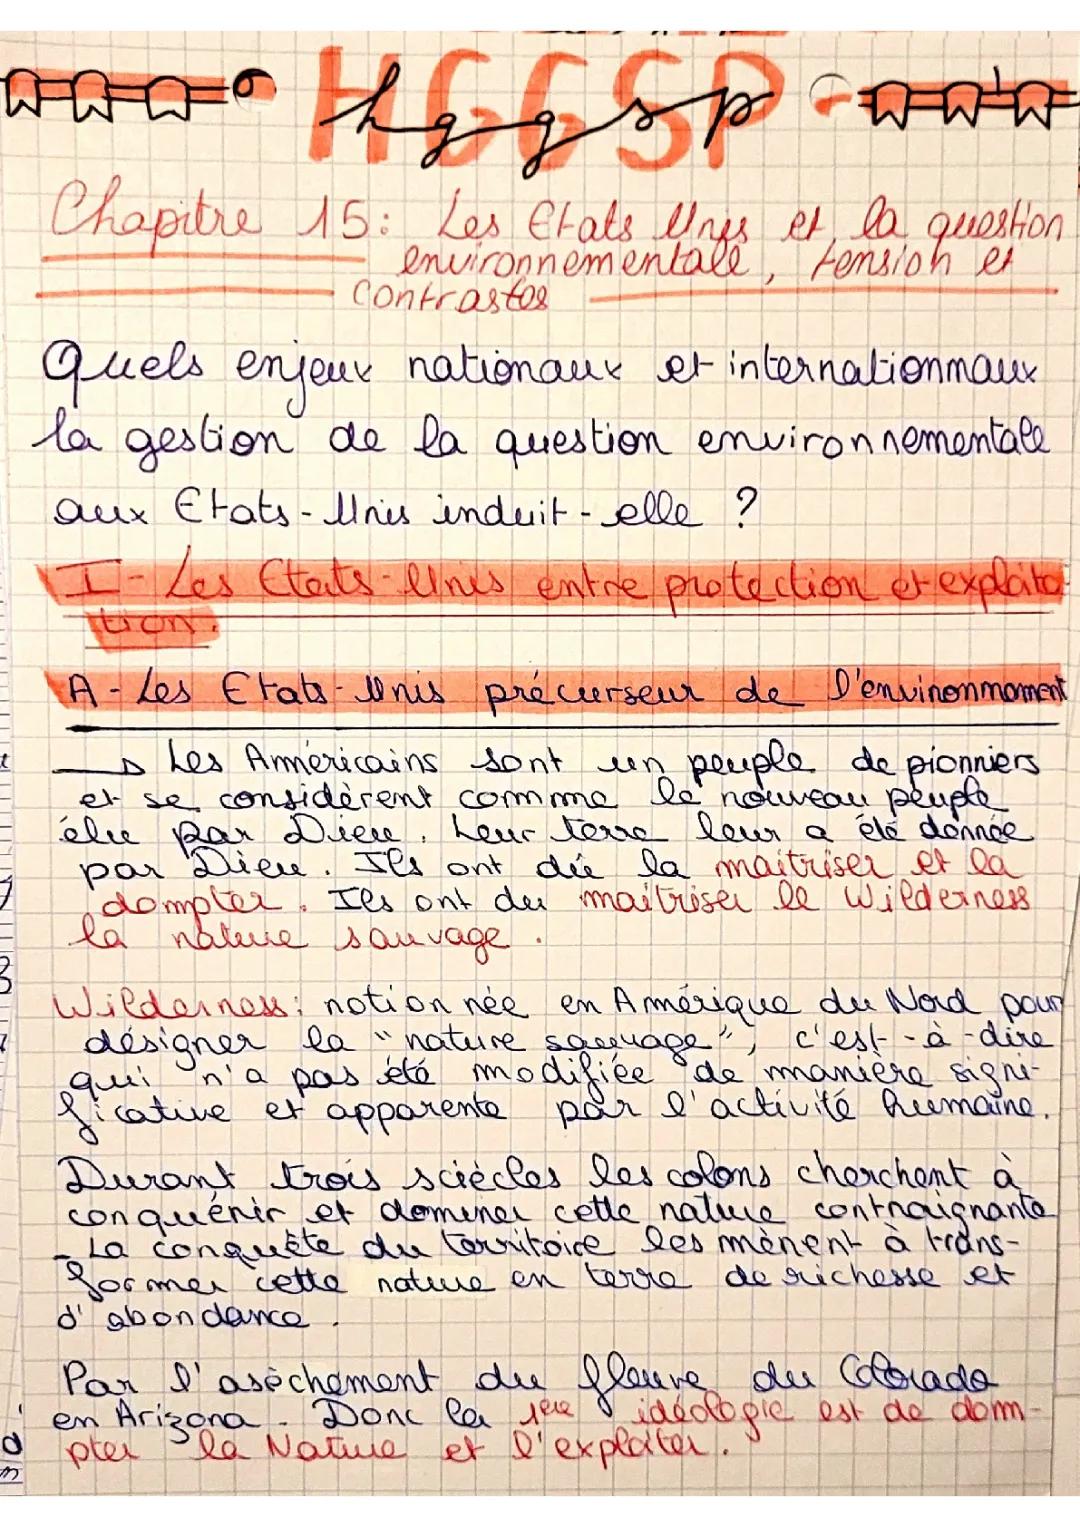 HGGSP
hggsp
Chapitre 15: Les Etats Unis et la question
environnementale, tension et
contrastes
Quels enjeux nationaux et internationnaux
la gestion de la question environnementale
aux Etats-Unis induit-elle ?
I- Les Etats-Unis entre protection et exploita
tion.
A- Les Etats-Unis précurseur de l'environnmoment
→ Les Américains sont un peuple de pionniers
et se considèrent comme le nouveau peuple
élu par Dieu. Leur terre leur a été donnée
par Dieu. Ils ont dû la maitriser et la
dompter. Ils ont du maitriser le Wilderness
la nature sauvage.
Wilderness: notion née en Amérique du Nord pour
désigner la "nature sauvage", c'est-à-dire
qui n'a pas été modifiée de manière signi-
ficative et apparente par l'activité humaine.
Durant trois sciècles les colons cherchent à
conquérir et dominer cette nature contraignante
- La conquête du territoire les mènent à trans-
former cette nature en terre de richesse et
d'abondance.
Par l'asèchement du fleuve du Colorado
en Arizona. Donc la 1ère idéologie est de dom-
pter la Nature et l'exploiter.